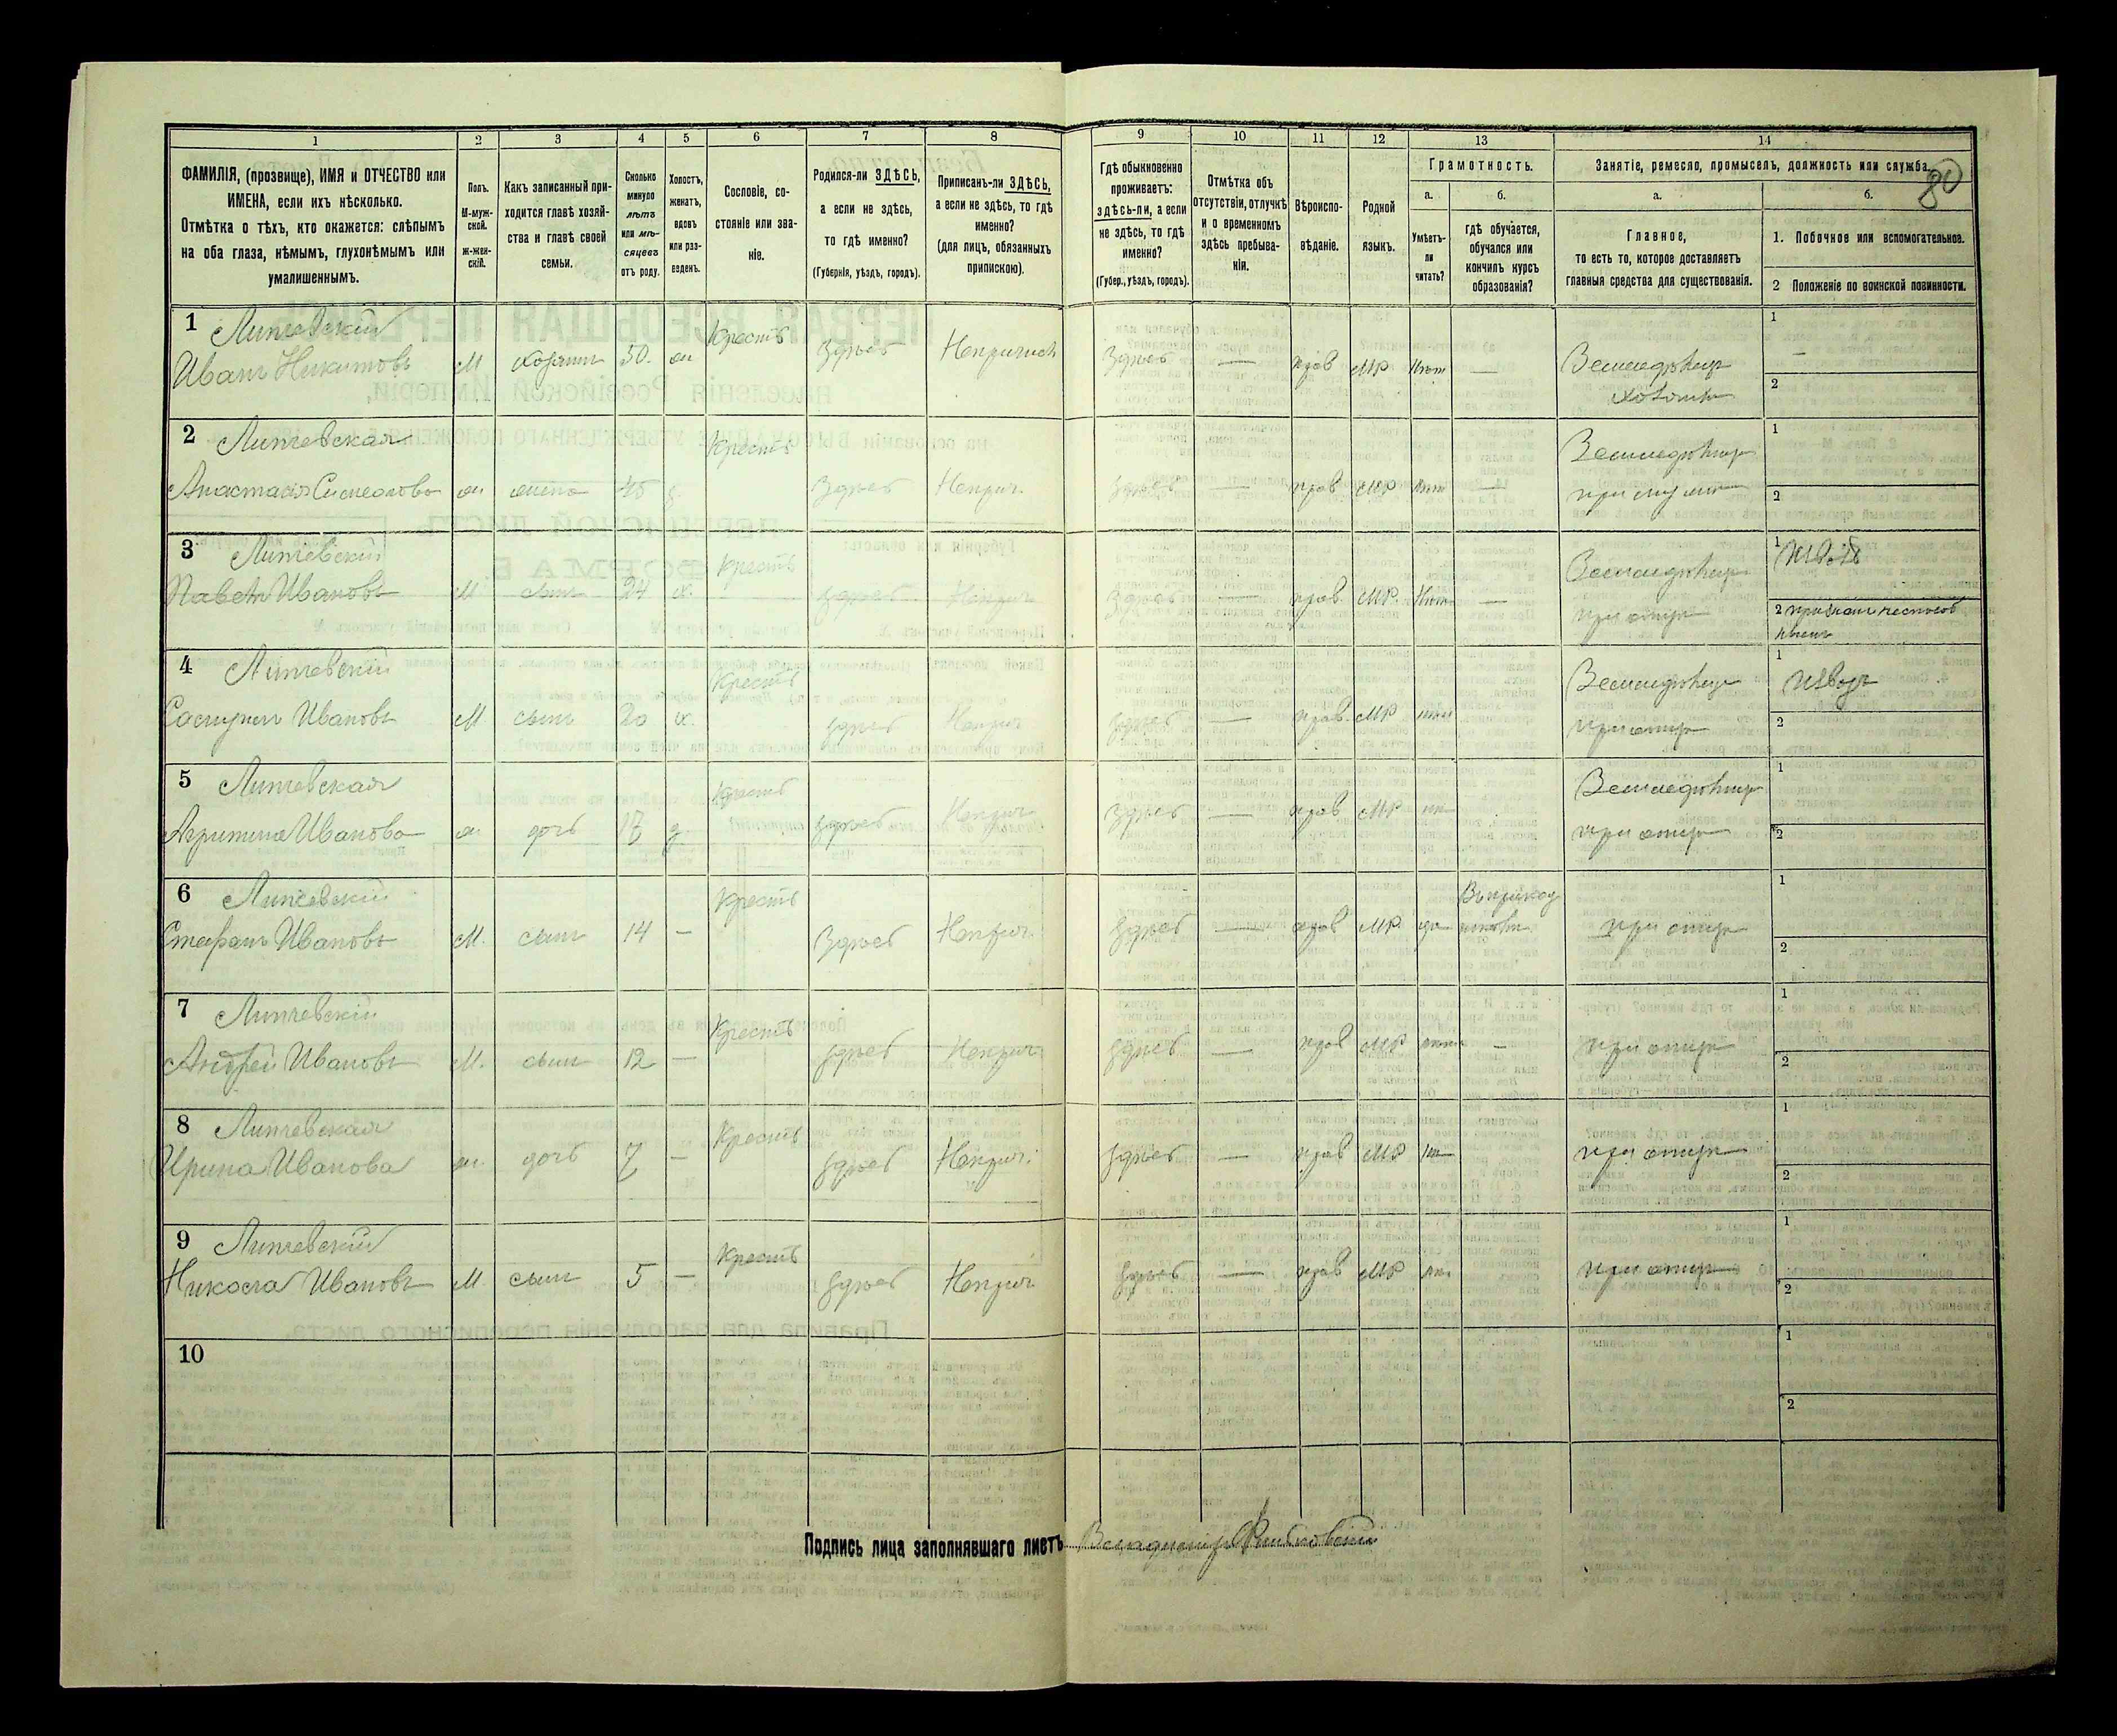 1 2 3 4 5 6 7 8 9 10 11 12 13 14
80
ФАМИЛІЯ, (прозвище), ИМЯ и ОТЧЕСТВО или
ИМЕНА, если ихъ нѣсколько.
Отмѣтка о тѣхъ, кто окажется: слѣпымъ
на оба глаза, нѣмымъ, глухонѣмымъ или
умалишеннымъ.
Полъ.
М-муж-
ской.
ж-жен-
скій.
Какъ записанный при-
ходится главѣ хозяй-
ства и главѣ своей
семьи.
Сколько
минуло
лѣтъ
или мѣ-
сяцевъ
отъ роду.
Холостъ,
женатъ,
вдовъ
или раз-
веденъ.
Сословіе, со-
стояніе или зва-
ніе.
Родился-ли ЗДѢСЬ,
а если не здѣсь,
то гдѣ именно?
(Губернія, уѣздъ, городъ).
Приписанъ-ли ЗДѢСЬ,
а если не здѣсь, то гдѣ
именно?
(для лицъ, обязанныхъ
припискою).
Гдѣ обыкновенно
проживаетъ:
здѣсь-ли, а если
не здѣсь, то гдѣ
именно?
(Губер., уѣздъ, городъ).
Отмѣтка объ
отсутствіи, отлучкѣ
и о временномъ
здѣсь пребыва-
ніи.
Вѣроиспо-
вѣданіе.
Родной
языкъ.
Грамотность.
а.
Умѣетъ-
ли
читать?
б.
гдѣ обучается,
обучался или
кончилъ курсъ
образованія?
Занятіе, ремесло, промыселъ, должность или служба.
а.
Главное,
то есть то, которое доставляетъ
главныя средства для существованія.
б.
1. Побочное или вспомогательное.
2 Положеніе по воинской повинности.
1 Липчевскій
Иванъ Никитовъ М хозяинъ 50. ж Крестъ Здѣсь Здѣсь — прав МР Нѣтъ —
Земледѣлецъ
хозяинъ
1 —
2
2 Липчевская
Анастасія Симеонова ж жена 45 Крестъ Здѣсь Неприч. Здѣсь — прав МР Нѣтъ —
Земледѣлецъ
1
2
3 Липчевскій
Павелъ Ивановъ М сынъ 24 х. Крестъ здѣсь Неприч Здѣсь — прав МР. Нѣтъ —
Земледѣлецъ
при отцѣ
1
2
4 Липчевскій
Ивановъ М сынъ 20 х. Крестъ здѣсь Неприч здѣсь — прав. МР нѣт
Земледѣлецъ
при отцѣ
1 Извозъ
2
5 Липчевская
Ивановна ж дочь 17 Крестъ здѣсь Неприч Здѣсь — прав МР нѣ
Земледѣлецъ
при отцѣ
1
2
6 Липчевскій
Стефанъ Ивановъ М. сынъ 14 — Крестъ Здѣсь Неприч. здѣсь — прав МР да
при отцѣ
1
2
7 Липчевскій
Андрей Ивановъ М. сынъ 12 — Крестъ здѣсь Неприч здѣсь — прав МР нѣтъ —
при отцѣ
1
2
8 Липчевская
Ирина Иванова ж. дочь 7 — Крестъ здѣсь Неприч. здѣсь — прав МР нѣ
при отцѣ
1
2
9 Липчевскій
Никола Ивановъ М. сынъ 5 — Крестъ здѣсь Неприч здѣсь — прав МР нѣ.
при отцѣ
1
2
10
1
2
Подпись лица заполнявшаго листъ Владиміръ